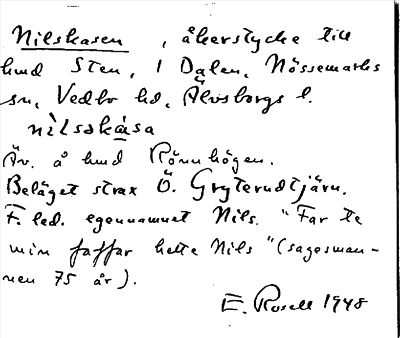 Nilskasen, åkerstycke till
hmd Sten, i Dalen, Nössemarks
sn, Vedbo hd, Älvsborgs l.
nìlsakása
Äv. å hmd Rönnhögen.
Beläget strax Ö. Gryterudtjärn.
F. led. egennamnet Nils. "Far te
min faffar hette Nils" (sagesman-
nen 75 år).
E. Rosell 1948